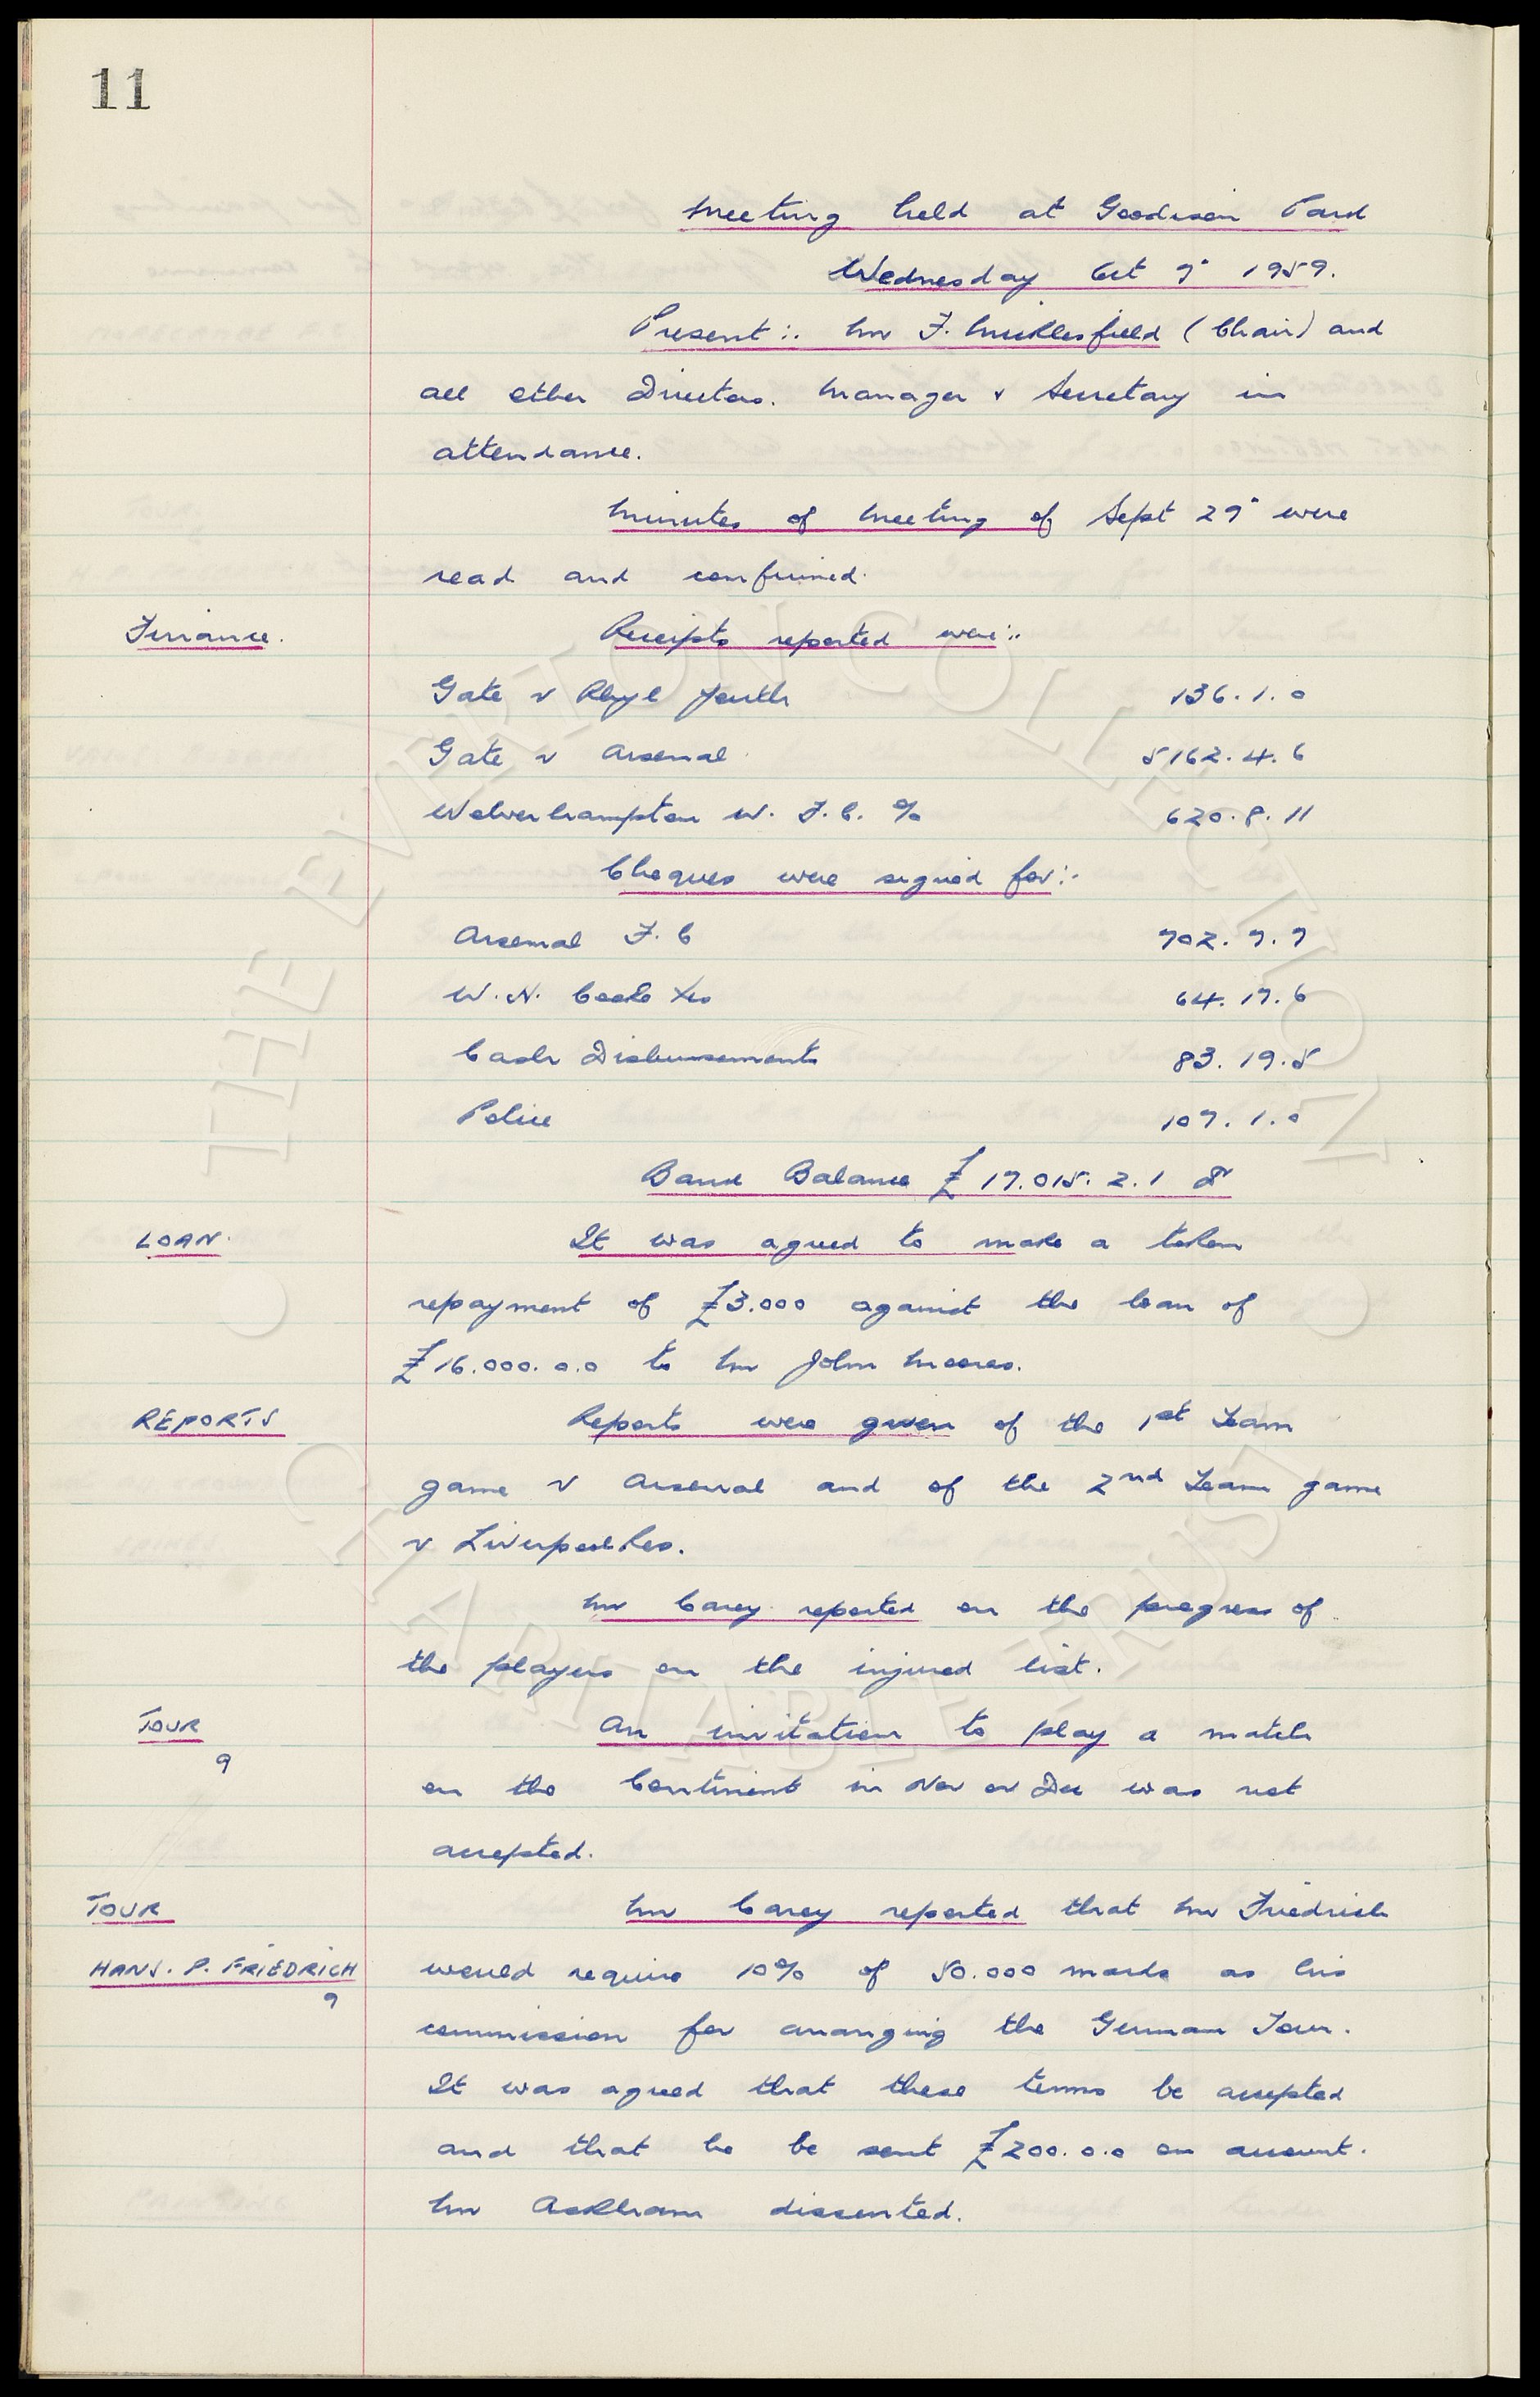 11
Meeting held at Goodison Park
Wednesday Oct 7" 1959.
Present:. Mr F. Micklesfield (Chair) and
all other Directors. Manager & Secretary in
attendance.
Minutes of Meeting of Sept 29" were
read and confirmed.
Finance.
Receipts reported were:.
Gate v Rhyl Youth 136.1.0
Gate v Arsenal 5162.4.6
Wolverhampton W. F.C. % 620.8.11
Cheques were signed for:-
Arsenal F.C 702.7.7
W.N. Cooke 64.17.6
Cash Disbursements 83.19.5
Police 107.1.0
Bank Balance £17.015.2.1 Dr
LOAN.
It was agreed to make a token
repayment of £3.000 against the loan of
£16.000.0.0 to Mr John Moores.
REPORTS
Reports were given of the 1st Team
game v Arsenal and of the 2nd Team game
v Liverpool Res.
Mr Carey reported on the progress of
the players on the injured list.
TOUR
9
An invitation to play a match
on the Continent in Nov or Dec was not
accepted.
TOUR
HANS. P. FRIEDRICH
9
Mr Carey reported that Mr Friedrich
would require 10% of 50.000 marks as his
commission for arranging the German Tour.
It was agreed that these terms be accepted
and that he be sent £200.0.0 on account.
Mr Askham dissented.
THE EVERTON COLLECTION
CHARITABLE TRUST